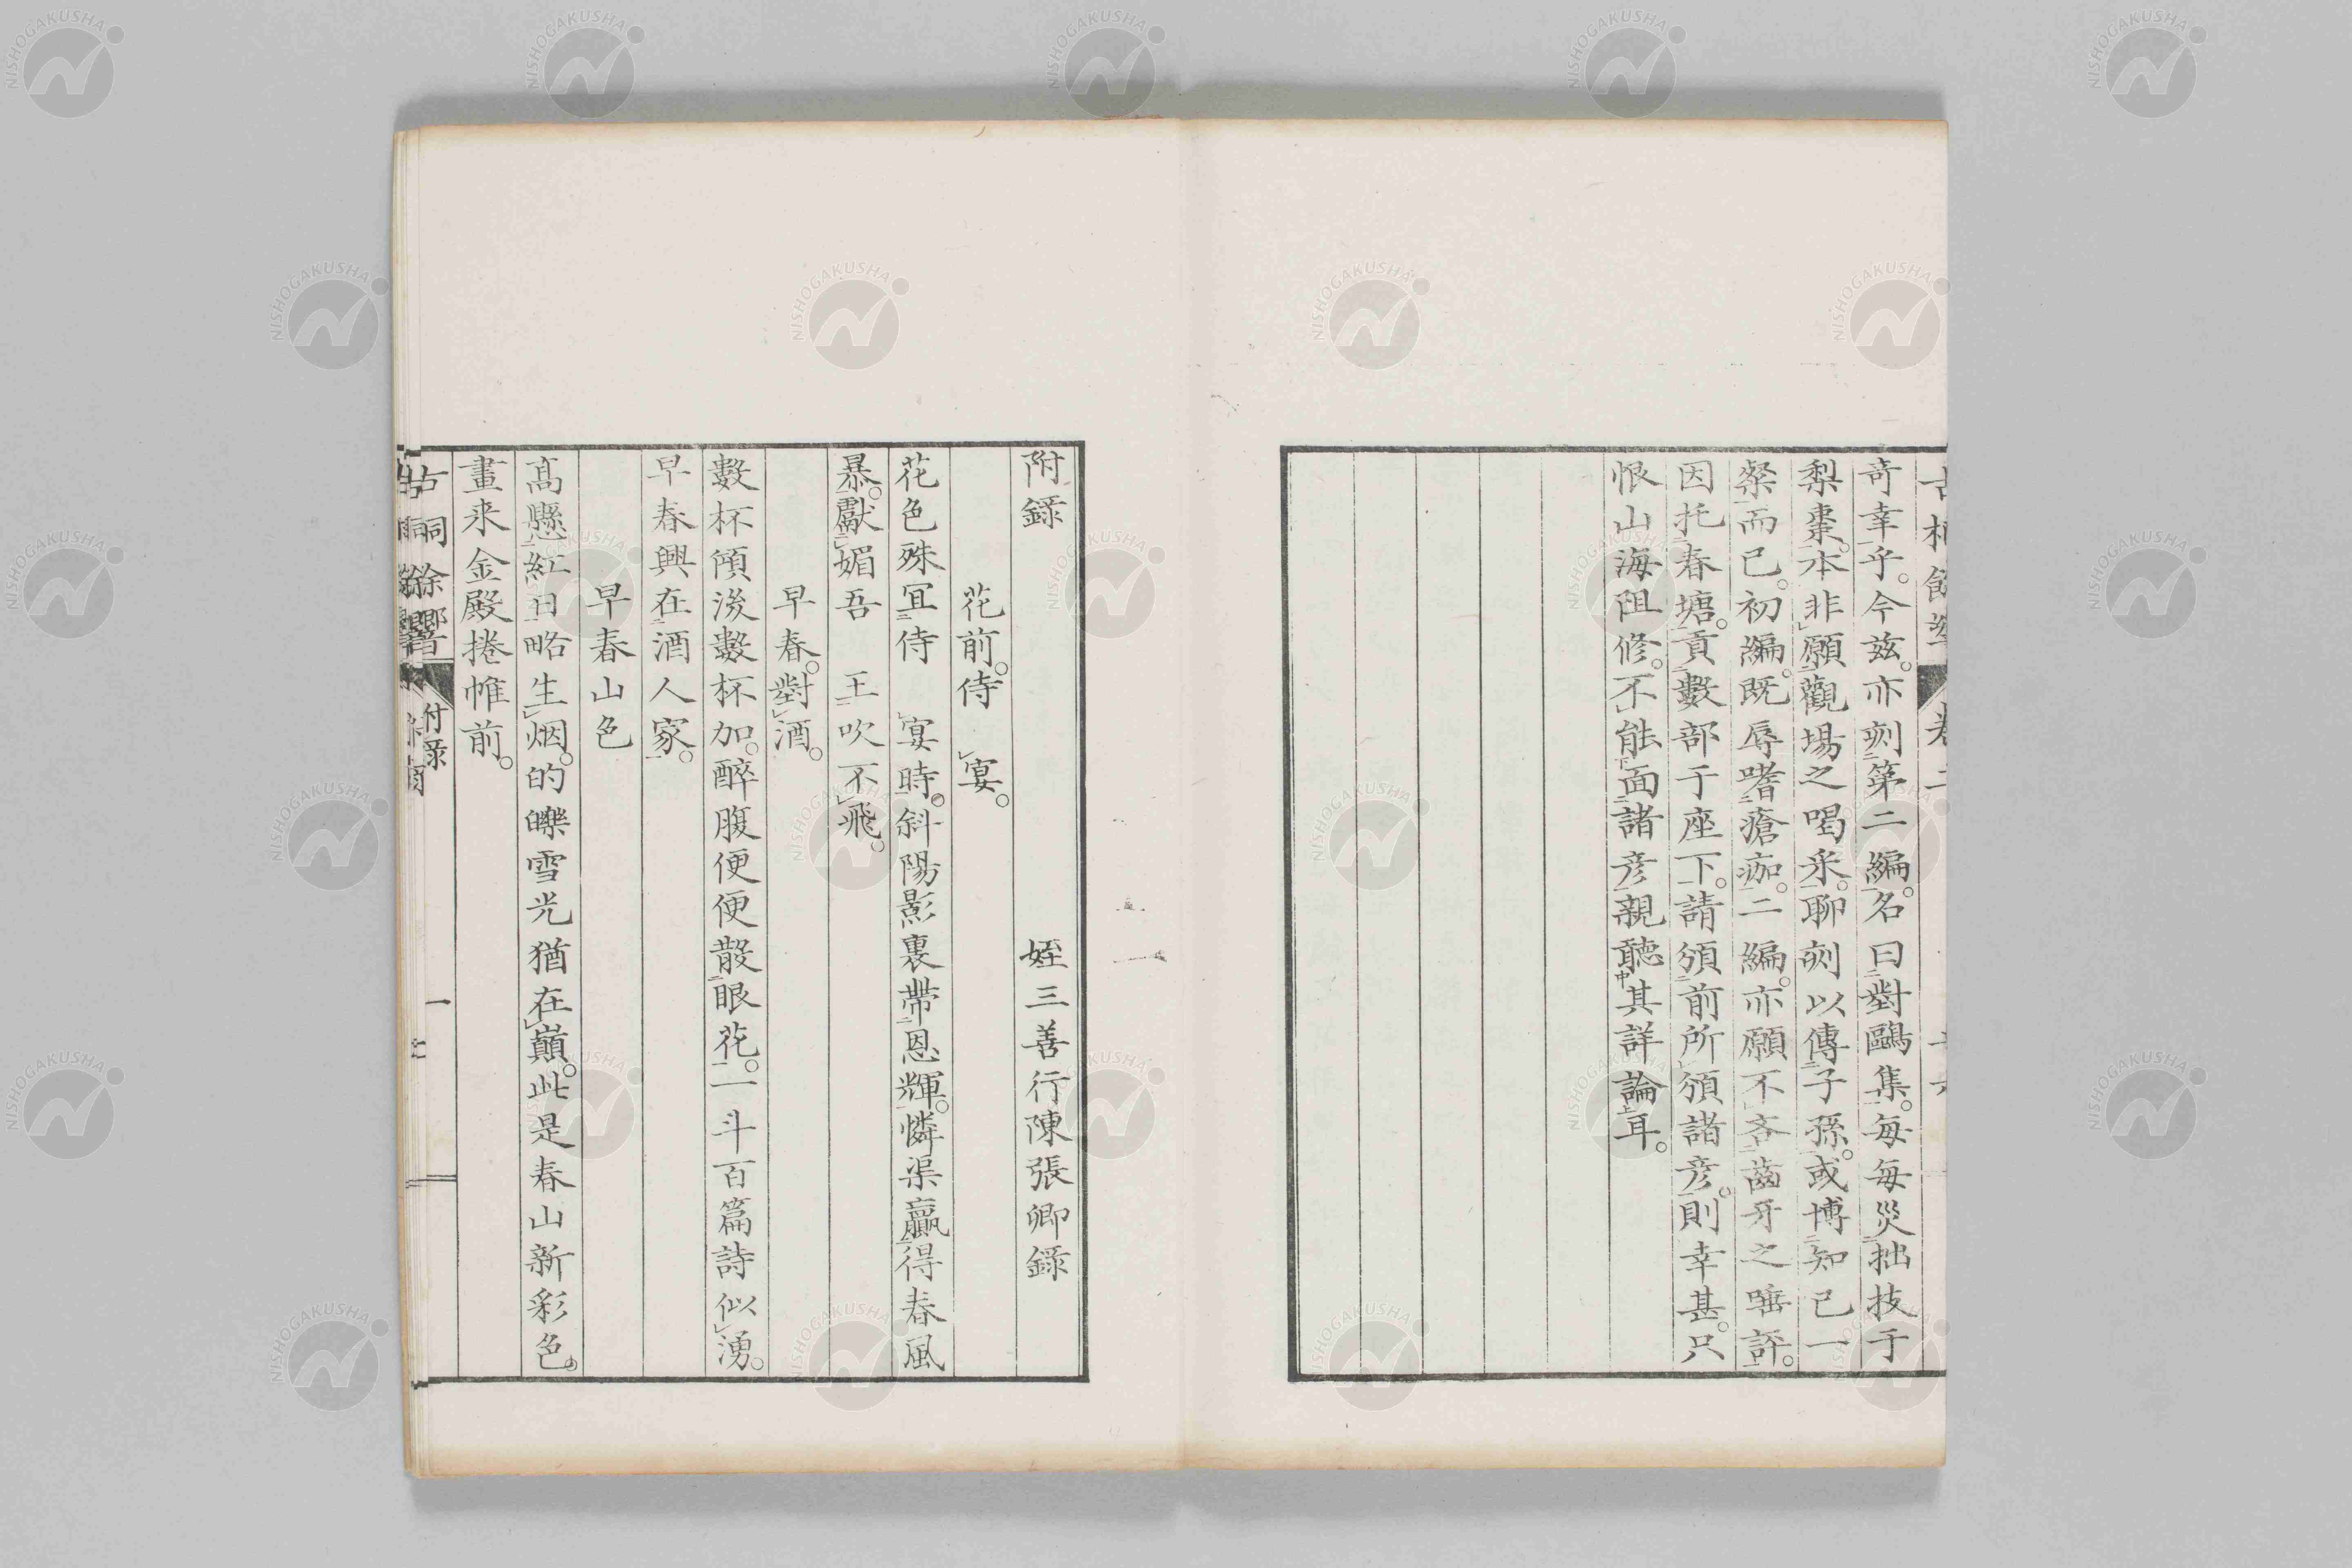 奇幸乎。今茲。亦刻第二編。名曰對鷗集。每每災拙技于
梨棗。本非願觀場之喝采。聊刻以傳子孫。或博知己一
粲而已。初編。既辱嗜瘡痂。二編。亦願不吝齒牙之唾評。
因托春塘。貢數部于座下。請頒前所頒諸彥。則幸甚。只
恨山海阻修。不能面諸彥親聽其詳論耳。
附錄
姪三善行陳張卿錄
花前。侍 宴。
花色殊宜侍 宴時。斜陽影裏帶恩輝。憐渠贏得春風
暴。獻媚吾 王吹不飛。
早春。對酒。
數杯傾後數杯加。醉腹便便散眼花。一斗百篇詩似湧。
早春興在酒人家。
早春山色
高懸紅日略生烟。的皪雪光猶在巔。此是春山新彩色。
畫来金殿捲帷前。
附錄
一
NISHOGAKUSHA